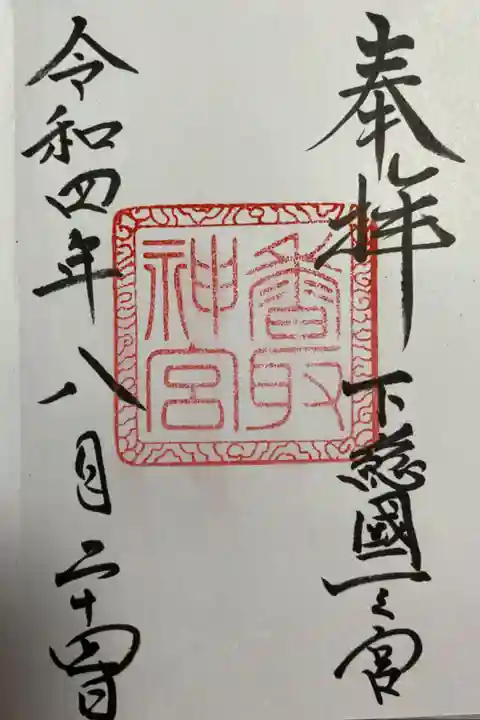 奉拝
下総國一之宮
香取
神宮
令和四年八月二十四日